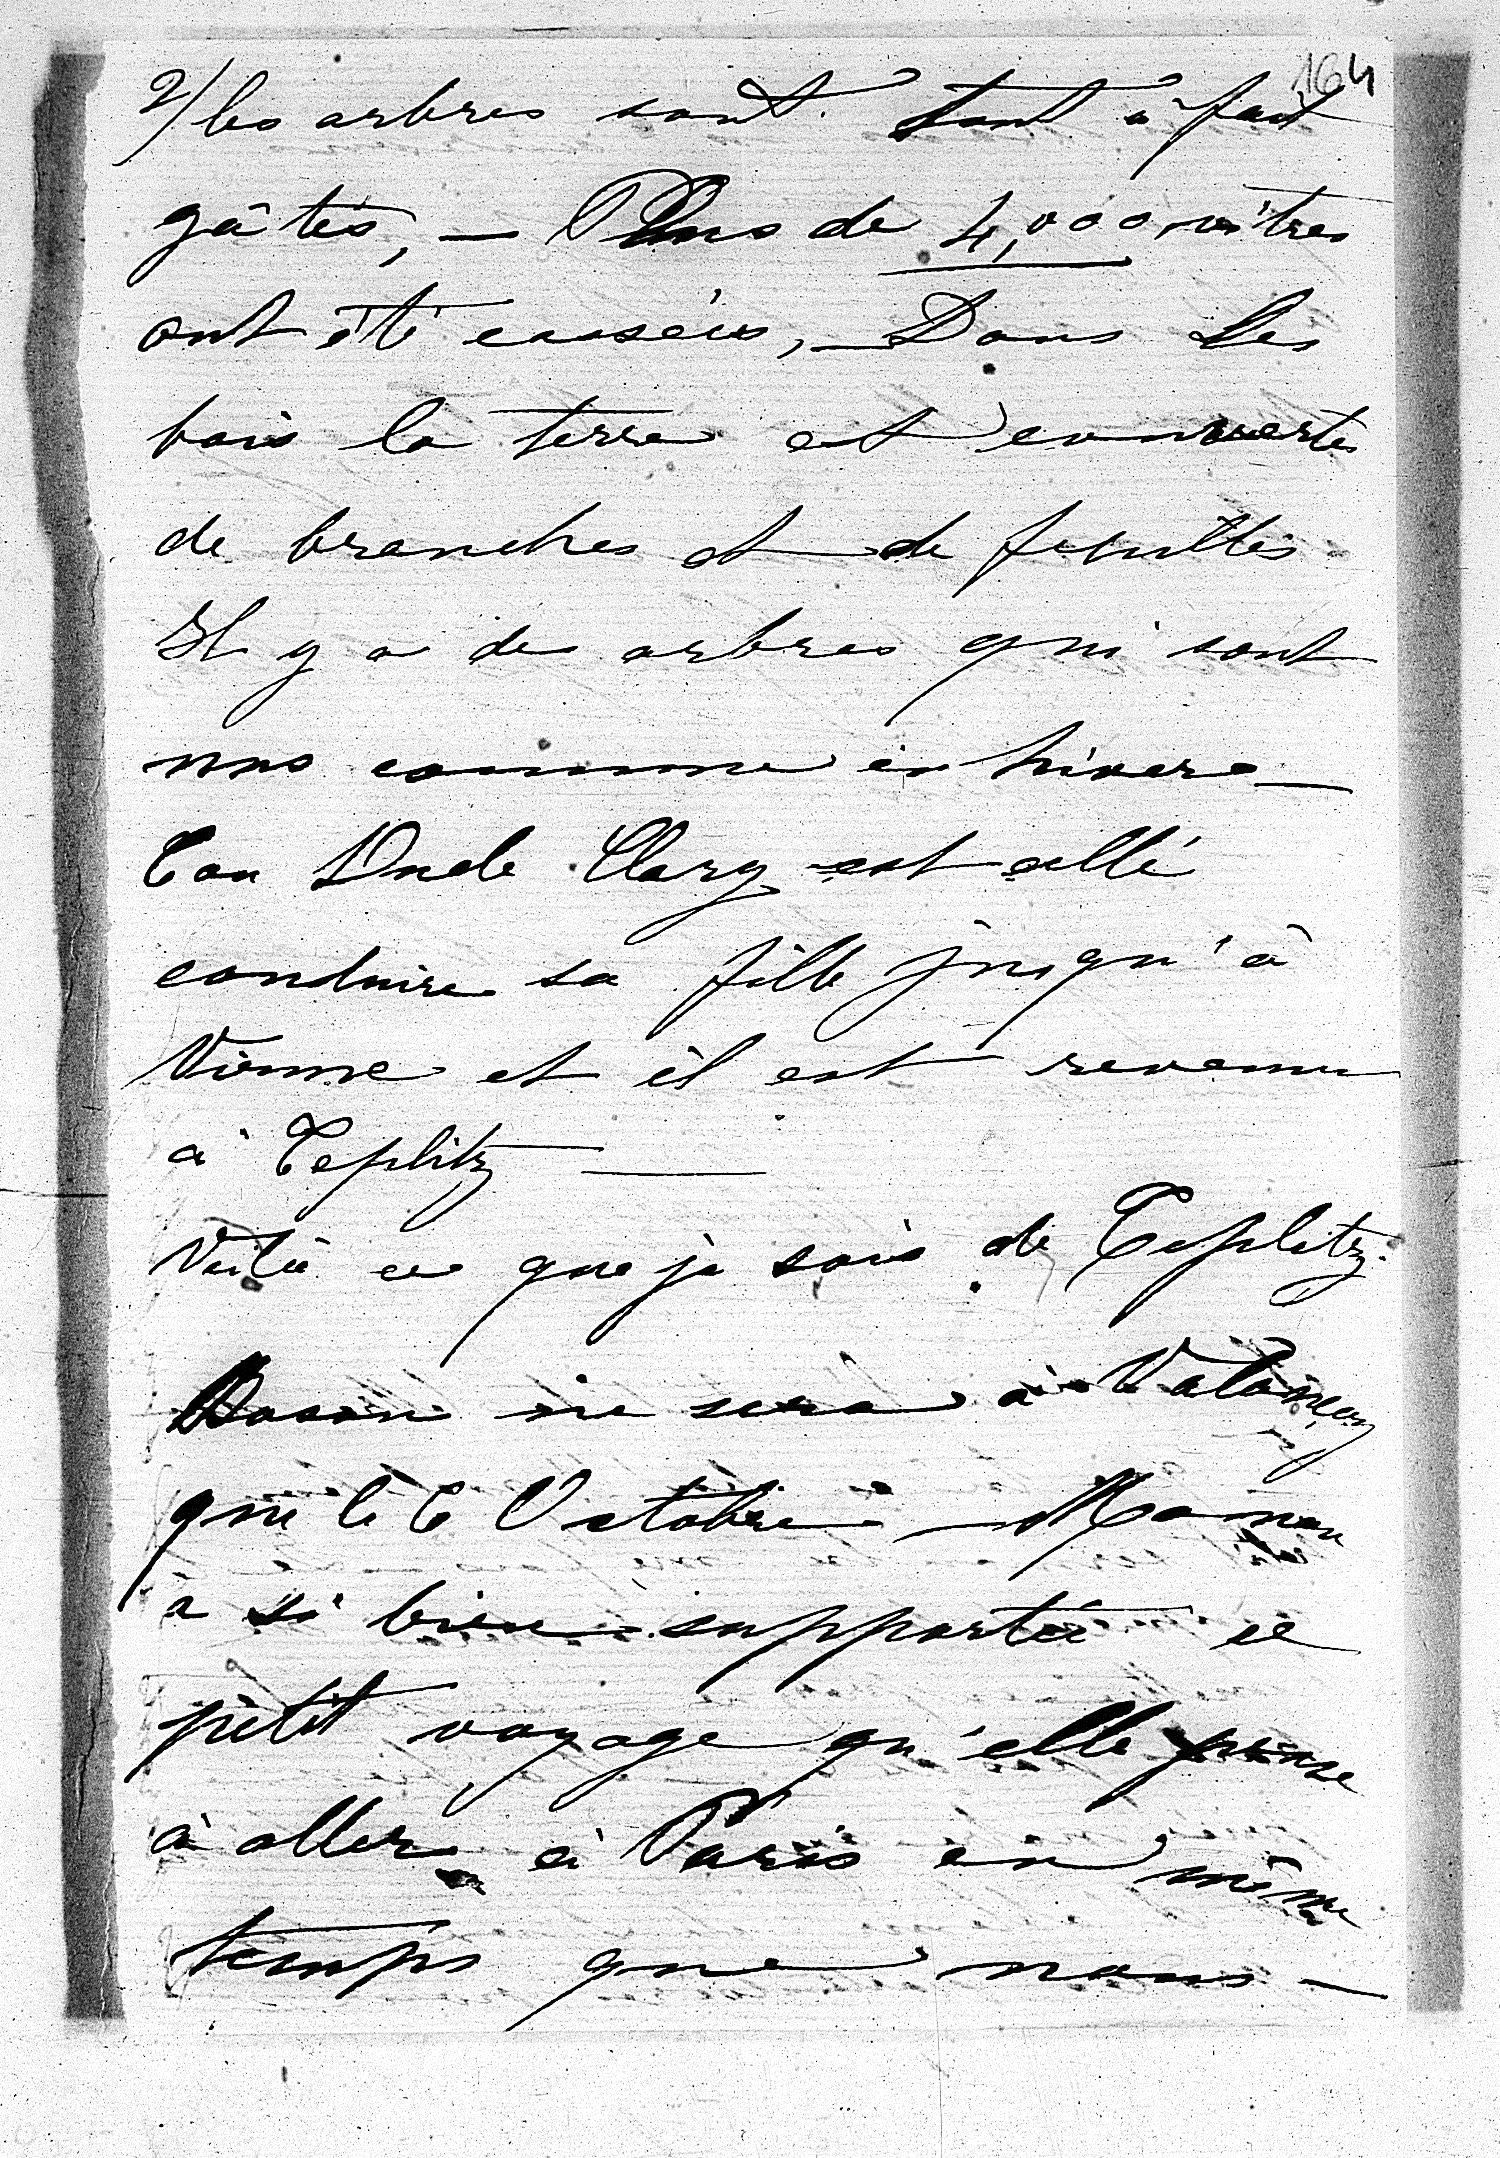 164
2/ les arbres sont tout à fait
gâtés, — Plus de 4,000 vitres
ont été cassées, — Dans les
bois la terre est couverte
de branches et de feuilles.
Il y a des arbres qui sont
nus comme en hivers —
Ton Oncle Clary est allé
conduire sa fille jusqu'à
Vienne et il est revenu
à Teplitz ——
Voilà ce que je sais de Teplitz.
Boson ne sera à Valençay
que le 6 Octobre — Maman
a si bien supporté ce
petit voyage qu'elle pense
à aller à Paris en même
temps que nous —